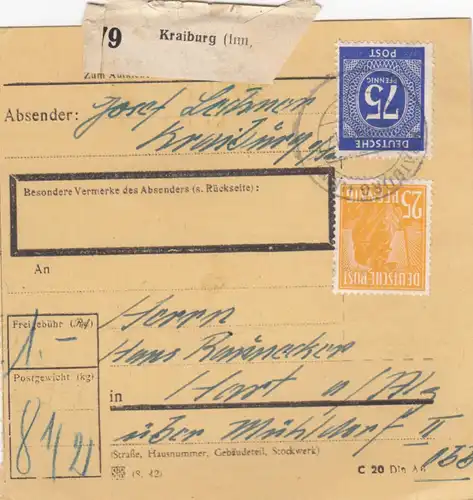 79 Kraiburg (Inn,
Absender: Josef
Kraiburg
75
PFENNIG
DEUTSCHE
POST
Besondere Vermerke des Absenders (s. Rückseite):
25
PFENNIG
DEUTSCHE POST
An
Freigebühr (Rpf)
Herrn
1.-
Hans
Postgewicht (kg)
in Hart a/Alz
8 1/2
über Mühldorf II
(Straße, Hausnummer, Gebäudeteil, Stockwerk)
(8. 42)
C 20 Din A6